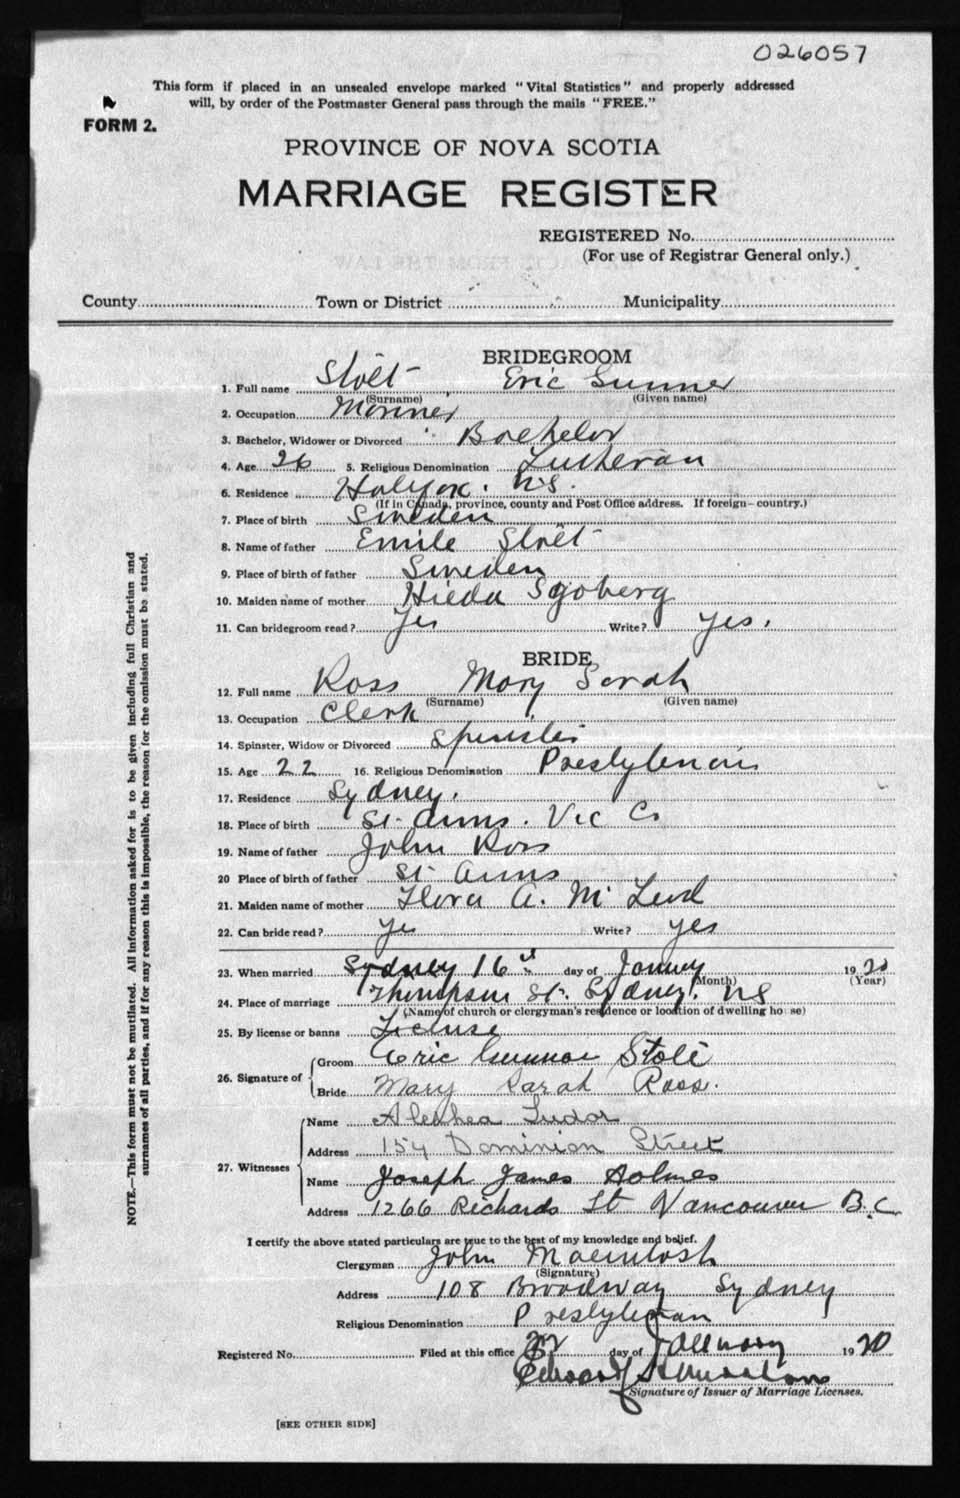 026057
This form if placed in an unsealed envelope marked "Vital Statistics" and properly addressed
will, by order of the Postmaster General pass through the mails "FREE."
FORM 2.
PROVINCE OF NOVA SCOTIA
MARRIAGE REGISTER
REGISTERED No.
(For use of Registrar General only.)
County Town or District Municipality
BRIDEGROOM
1. Full name Stolt Eric Gunner
(Surname) (Given name)
2. Occupation Mariner
3. Bachelor, Widower or Divorced Bachelor
4. Age 26 5. Religious Denomination Lutheran
6. Residence Halifax. N.S.
(If in Canada, province, county and Post Office address. If foreign—country.)
7. Place of birth Sweden
8. Name of father Emile Stolt
9. Place of birth of father Sweden
10. Maiden name of mother Hilda Sjoberg
11. Can bridegroom read? Yes Write? Yes.
BRIDE
12. Full name Ross Mary Sarah
(Surname) (Given name)
13. Occupation Clerk
14. Spinster, Widow or Divorced Spinster
15. Age 22 16. Religious Denomination Presbyterian
17. Residence Sydney.
18. Place of birth St. Anns. Vic Co
19. Name of father John Ross
20 Place of birth of father St Anns
21. Maiden name of mother Flora A. McLeod
22. Can bride read? Yes Write? Yes
23. When married Sydney 16th day of January 1920
(Month) (Year)
24. Place of marriage Thompson St. Sydney. NS
(Name of church or clergyman's residence or location of dwelling house)
25. By license or banns License
26. Signature of Groom Eric Gunnar Stolt
Bride Mary Sarah Ross.
27. Witnesses Name Alethea Tudor
Address 154 Dominion Street
Name Joseph James Holmes
Address 1266 Richards St Vancouver B.C
I certify the above stated particulars are true to the best of my knowledge and belief.
Clergyman John Macintosh
(Signature)
Address 108 Broadway Sydney
Religious Denomination Presbyterian
Registered No. Filed at this office day of January 1920
Signature of Issuer of Marriage Licenses.
[SEE OTHER SIDE]
NOTE.—This form must not be mutilated. All information asked for is to be given including full Christian and
surnames of all parties, and if for any reason this is impossible, the reason for the omission must be stated.